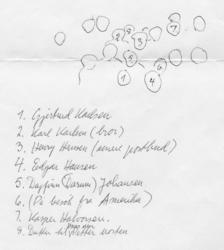 1. Gjertrud Karlsen
2. Karl Karlsen (bror)
3. Henry Hansen (senere postbud)
4. Edgar Hansen
5. Dagfinn (Darum) Johansen
6. (På besøk fra Amerika)
7. Kasper Halvorsen.
8. til Petter